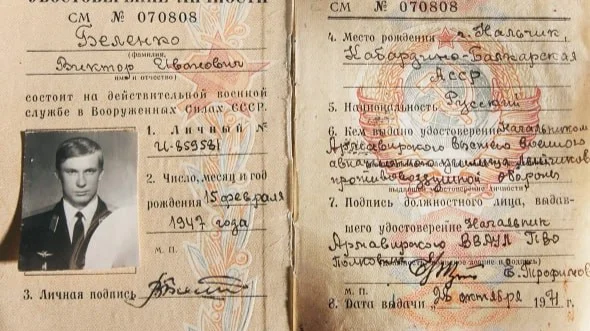 УДОСТОВЕРЕНИЕ ЛИЧНОСТИ
СМ № 070808
Беленко
(фамилия,
Виктор Иванович
имя и отчество)
состоит на действительной военной
службе в Вооруженных Силах СССР.
1. Личный №
И-859581
2. Число, месяц и год
рождения 15 февраля
1947 года
М. П.
3. Личная подпись
СМ № 070808
4. Место рождения г. Нальчик,
Кабардино-Балкарская
АССР
5. Национальность Русский
6. Кем выдано удостоверение Начальником
Армавирского высшего военного
авиационного училища летчиков
противовоздушной обороны
7. Подпись должностного лица, выдав-
шего удостоверение Начальник
Армавирского ВВАУЛ ПВО
Полковник
М. П.
8. Дата выдачи 26 октября 1971 г.